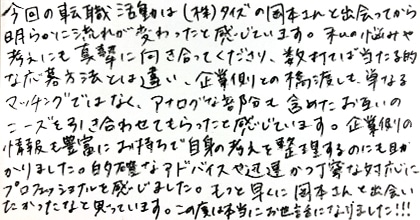 今回の転職活動は(株)タイズの国本さんと出会ってから
明らかに流れが変わったと感じています。私の悩みや
考えにも真摯に向き合ってくださり、数打てば当たる的
な応募方法とは違い、企業側との橋渡しも単なる
マッチングではなく、アナログな部分も含めたお互いの
ニーズを引き合わせてもらったと感じています。企業側の
情報も豊富にお持ちで自身の考えを整理するのにも助
かりました。的確なアドバイスや迅速かつ丁寧な対応に
プロフェッショナルを感じました。もっと早くに国本さんと出会い
たかったなと思っています。この度は本当にお世話になりました!!!